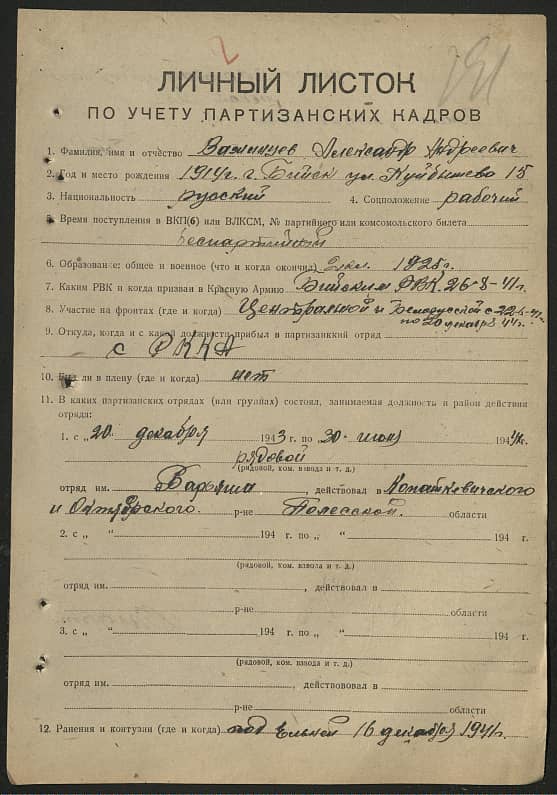 2
191
ЛИЧНЫЙ ЛИСТОК
ПО УЧЕТУ ПАРТИЗАНСКИХ КАДРОВ
1. Фамилия, имя и отчество Важинцев Александр Андреевич
2. Год и место рождения 1914 г. г. Бийск ул. Куйбышева 15
3. Национальность русский 4. Соцположение рабочий
5. Время поступления в ВКП(б) или ВЛКСМ, № партийного или комсомольского билета
беспартийный
6. Образование: общее и военное (что и когда окончил) 2 кл. 1925 г.
7. Каким РВК и когда призван в Красную Армию Бийским РВК. 26-8-41 г.
8. Участие на фронтах (где и когда) Центральной и Белорусской с
по 20 декабря
9. Откуда, когда и с какой должности прибыл в партизанский отряд
с РККА
10. Был ли в плену (где и когда) нет
11. В каких партизанских отрядах (или группах) состоял, занимаемая должность и район действия
отряда:
1. с „20" декабря 1943 г. по „30" июня 1944 г.
рядовой
(рядовой, ком. взвода и т. д.)
отряд им. , действовал в Копаткевичского
и Октябрьского. р-не Полесской. области
2. с „ " 194 г. по „ " 194 г.
(рядовой, ком. взвода и т. д.)
отряд им. , действовал в
р-не области
3. с „ " 194 г. по „ " 194 г.
(рядовой, ком. взвода и т. д.)
отряд им. , действовал в
р-не области
12. Ранения и контузии (где и когда) под Ельней 16 декабря 1941 г.